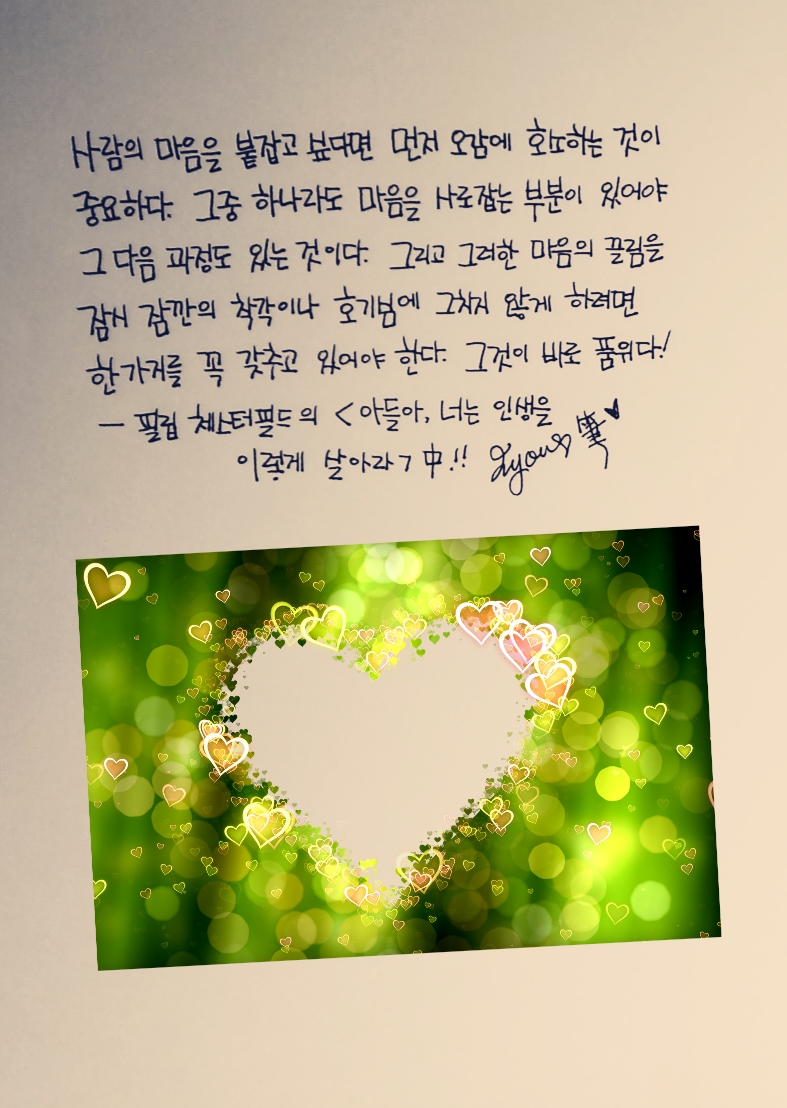 사람의 마음을 붙잡고 싶다면 먼저 오감에 호소하는 것이
중요하다. 그중 하나라도 마음을 사로잡는 부분이 있어야
그 다음 과정도 있는 것이다. 그리고 그러한 마음의 끌림을
잠시 잠깐의 착각이나 호기심에 그치지 않게 하려면
한가지를 꼭 갖추고 있어야 한다. 그것이 바로 품위다!
— 필립 체스터필드의 <아들아, 너는 인생을
이렇게 살아라> 中!! 筆